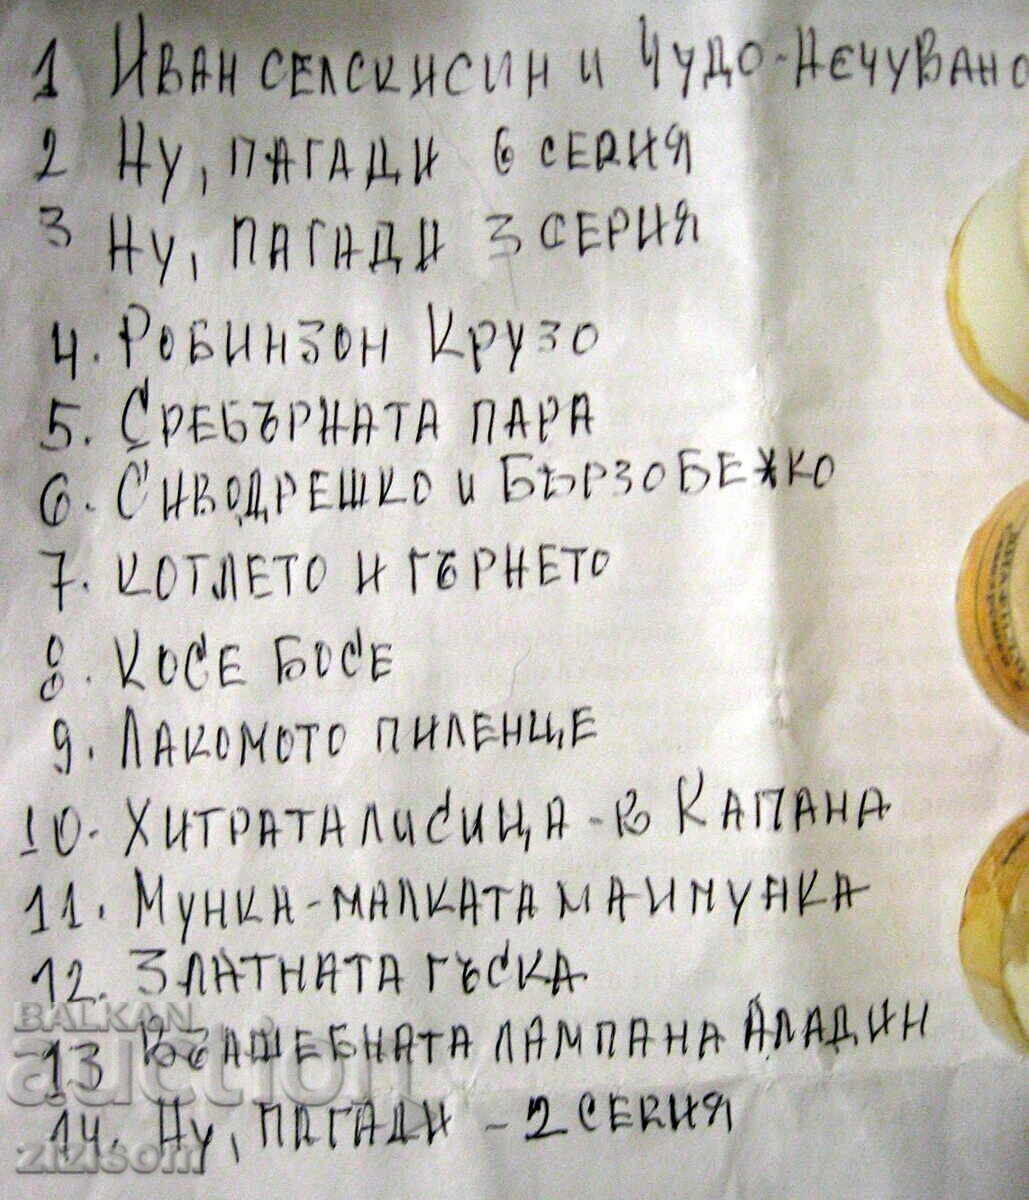 1 ИВАН СЕЛСКИ СИН И ЧУДО-НЕЧУВАНО
2 НУ, ПАГАДИ 6 СЕРИЯ
3 НУ, ПАГАДИ 3 СЕРИЯ
4. РОБИНЗОН КРУЗО
5. СРЕБЪРНАТА ПАРА
6. СИВОДРЕШКО И БЪРЗОБЕЖКО
7. КОТЛЕТО И ГЪРНЕТО
8. КОСЕ БОСЕ
9. ЛАКОМОТО ПИЛЕНЦЕ
10. ХИТРАТА ЛИСИЦА - В КАПАНА
11. МУНКИ - МАЛКАТА МАИМУНКА
12. ЗЛАТНАТА ГЪСКА
BALKAN
13 ВЪЛШЕБНАТА ЛАМПА НА АЛАДИН
auction
14. НУ, ПАГАДИ - 2 СЕРИЯ
zizisom